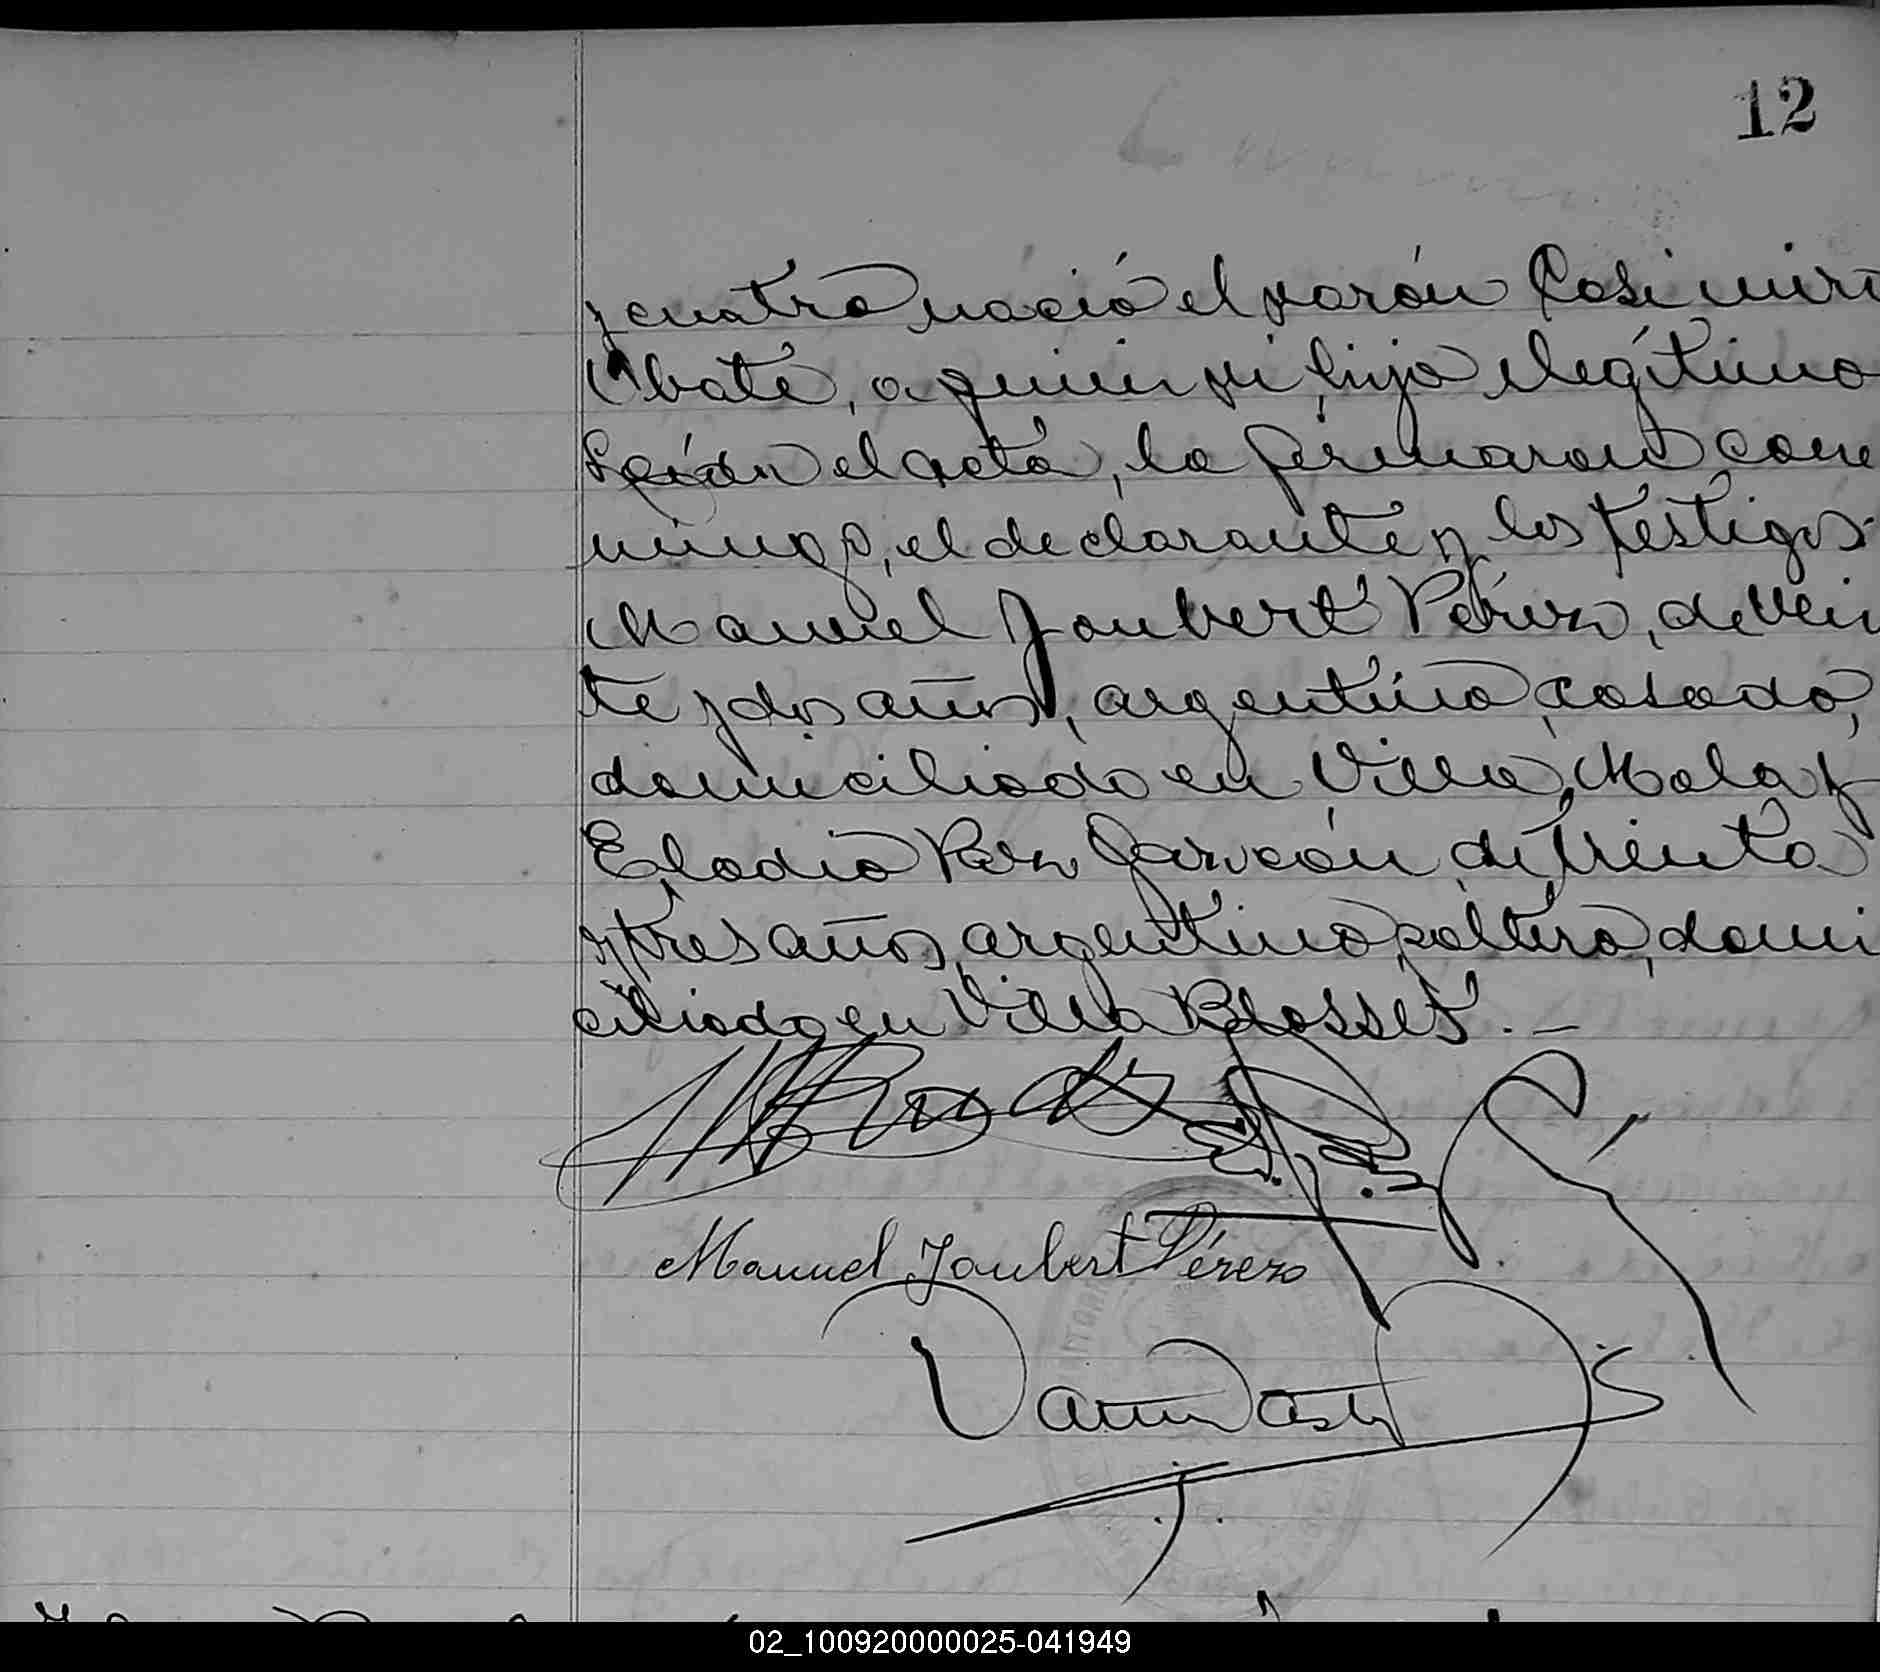 12
y cuatro nació el varón Casimiro
Abate, a quien vi, hijo ilegítimo
Leída el acta, la firmaron con
migo, el declarante y los testigos:
Manuel Joubert Pérez, de vein
te y dos años, argentino, casado,
domiciliado en Villa Mola y
Elodio Paz Garzón, de treinta
y tres años, argentino, soltero, domi
ciliado en Villa Blosset. —
Manuel Joubert Pérez
02_100920000025-041949